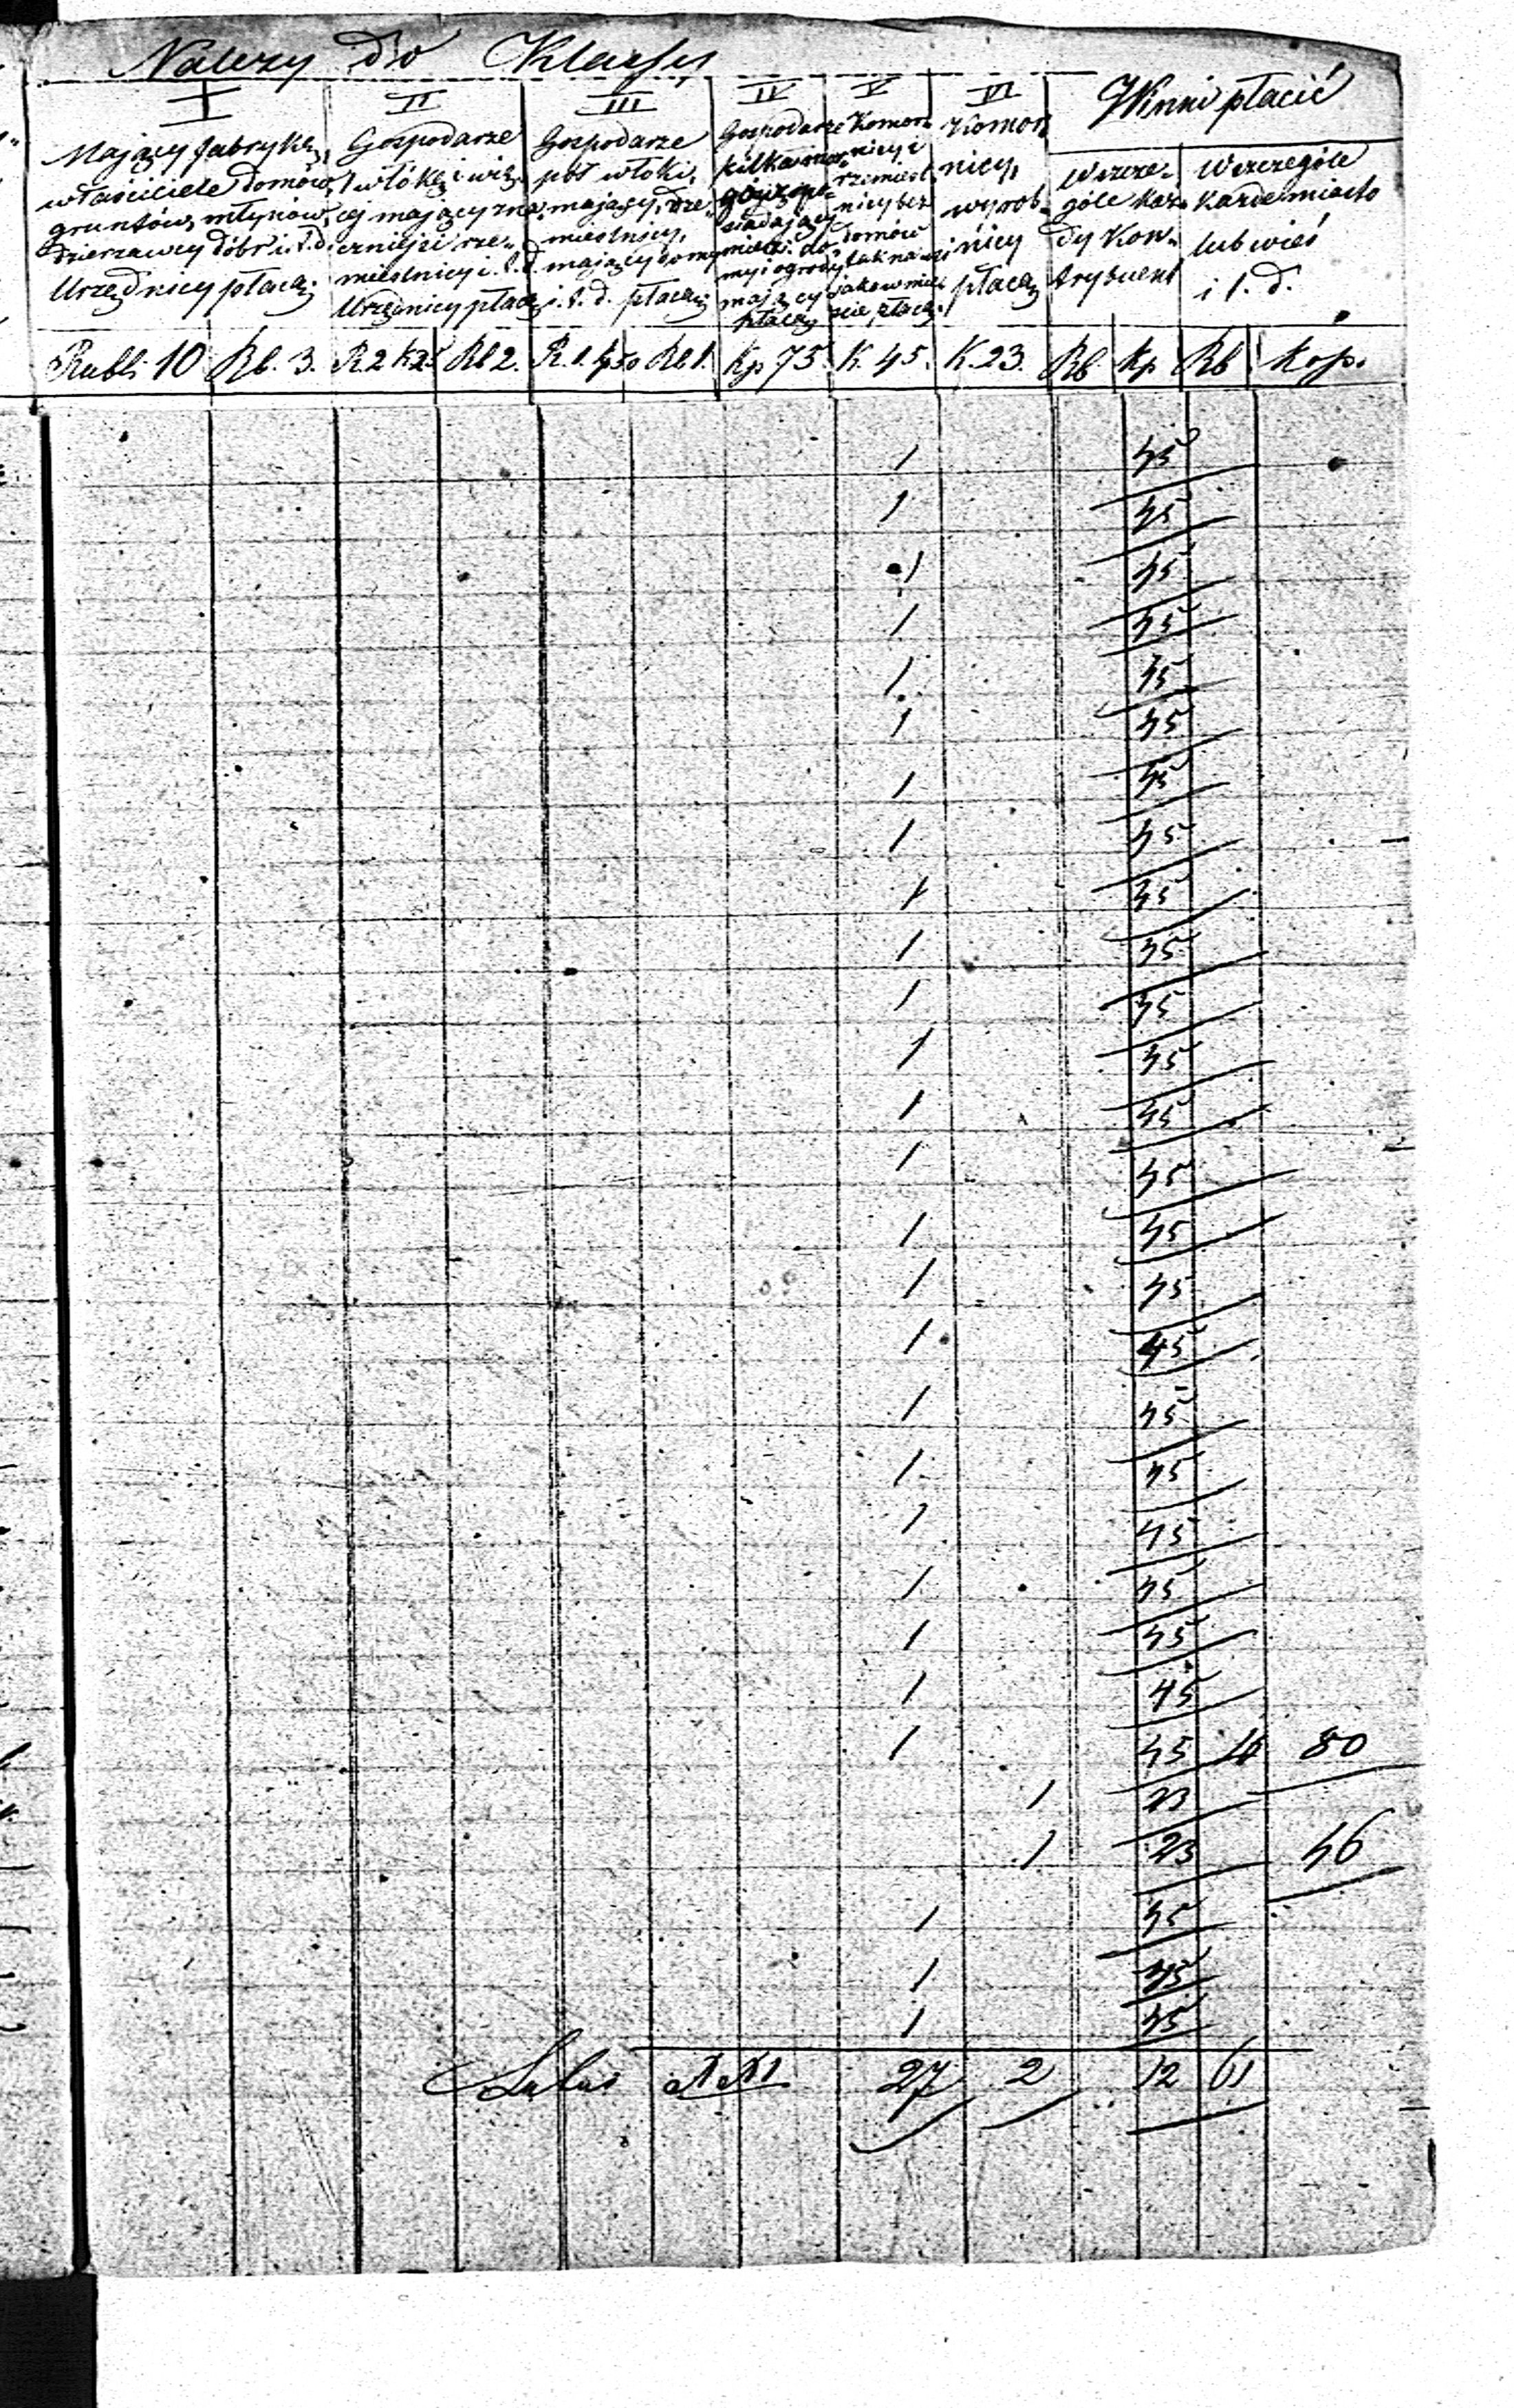 Należy do Klassy
I II III IV V VI Winni płacić
Mający fabrykę, właściciele domów, gruntów, młynów, dzierzawcy dóbr i.t.d. Urzędnicy płacą:
Gospodarze 1 włókę i więcej mający, znaczniejsi rzemieślnicy i.t.d. Urzędnicy płacą
Gospodarze pół włóki, mający, rzemieślnicy, mający domy i.t.d. płacą:
Gospodarze kilka morgów posiadający, mieszk. domy i ogrody mający płacą
Komornicy i rzemieślnicy bez domów tak na wsi jako w mieście płacą.
Komornicy, wyrobnicy płacą
Wszczególe każdy Kontrybuent
Wszczególe każde miasto lub wieś i t. d.
Rubli 10 Rb. 3. R 2 k 25 Rb 2. R. 1. kp 50 Rb 1. Kp 75 K. 45. K. 23. Rb. Kp Rb Kop.
1 45
1 45
1 45
1 45
1 45
1 45
1 45
1 45
1 45
1 45
1 45
1 45
1 45
1 45
1 45
1 45
1 45
1 45
1 45
1 45
1 45
1 45
1 45
1 45 80
1 23
1 23 46
1 45
1 45
1 45
Latus 27 2 12 61